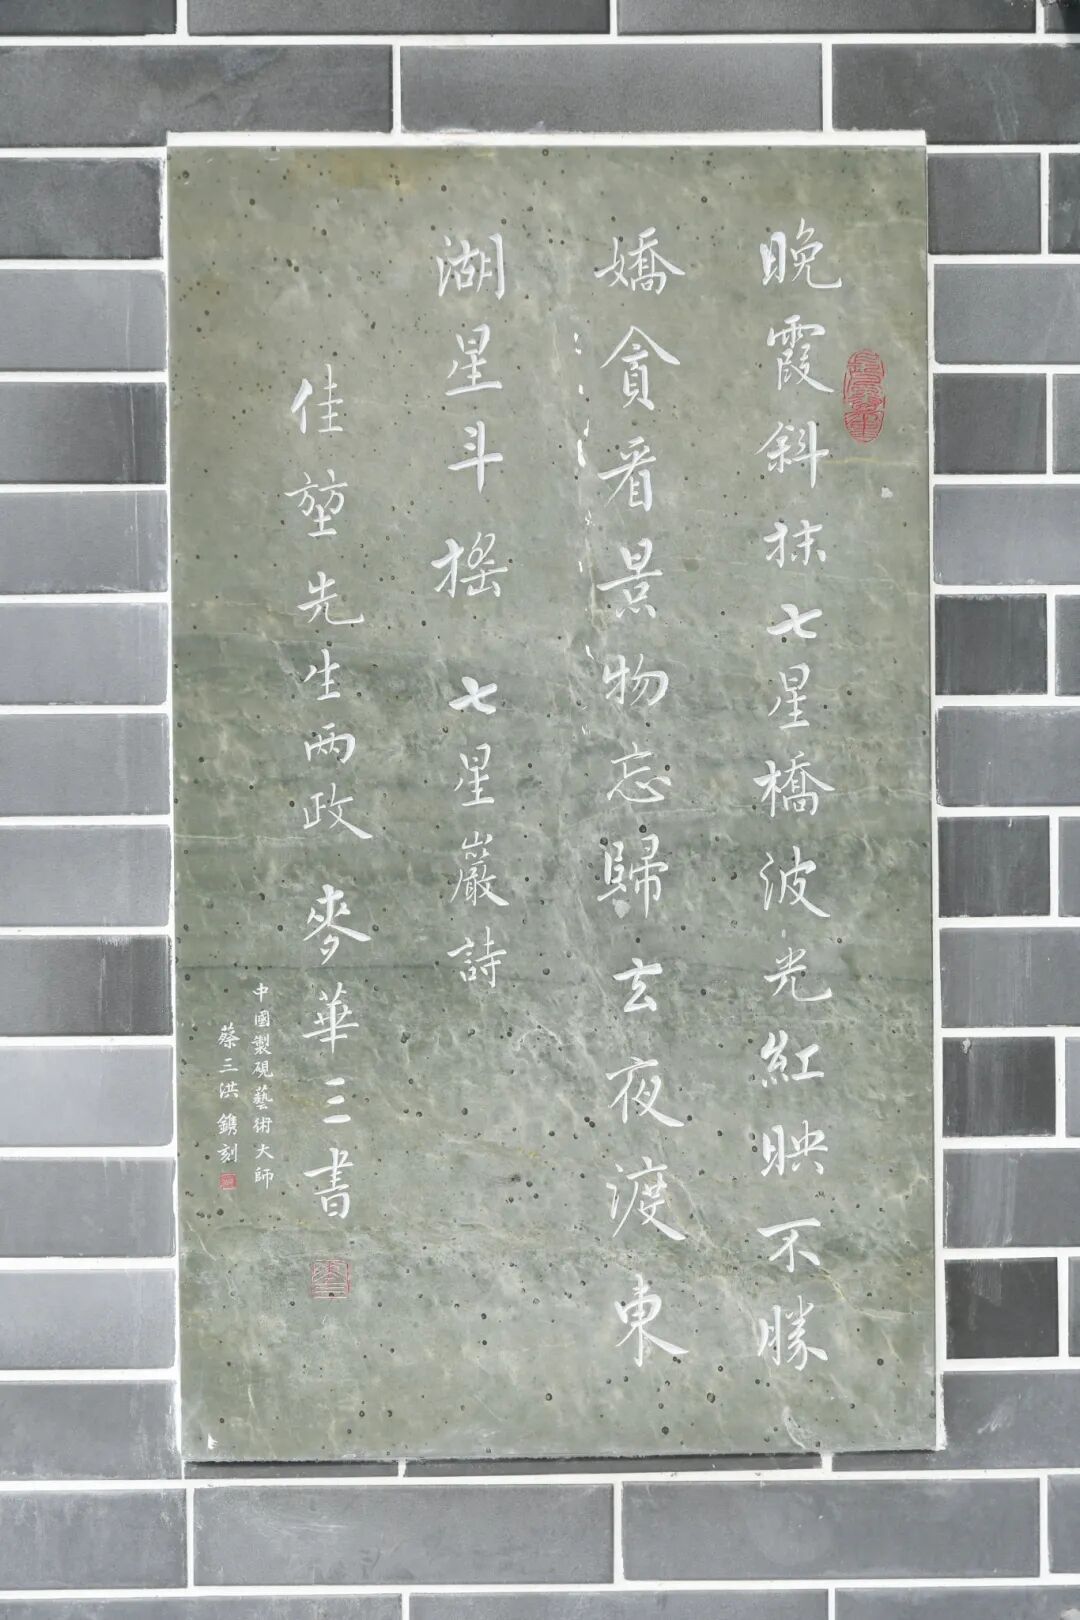 晚霞斜抹七星橋波光紅映不勝
嬌貪看景物忘歸去夜渡東
湖星斗搖 七星巖詩
佳堃先生两政 麥華三書
中國製硯藝術大師
蔡三洪鐫刻